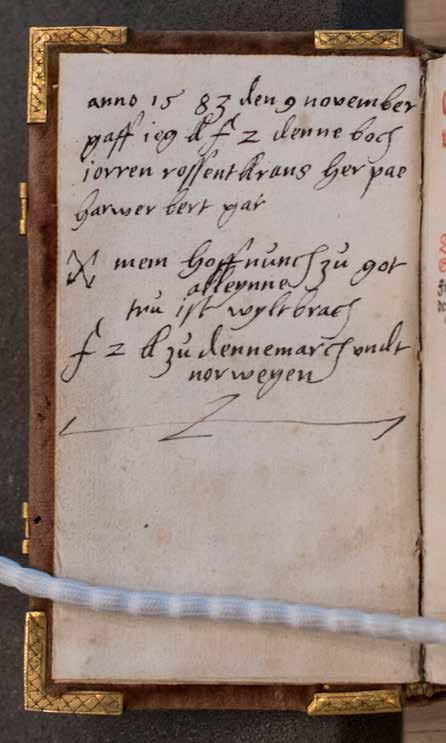 anno 15 83 den 9 november
gaff ieg k f 2 denne boch
iorren rossentkrans her pae
harwer bert gar
mein hoffnunch zu got
alleynne
tru ist wyltbrach
f 2 k zu dennemarch undt
norwegen